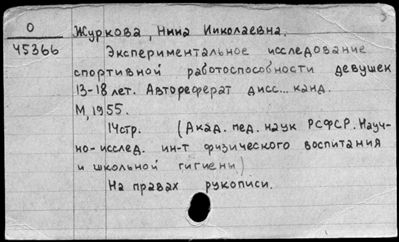 О
45366
Журкова, Нина Николаевна.
Экспериментальное исследование
спортивной работоспособности девушек
13-18 лет. Автореферат дисс... канд.
М, 1955.
14стр. (Акад. пед. наук РСФСР. Науч-
но-исслед. ин-т физического воспитания
и школьной гигиены)
На правах рукописи.